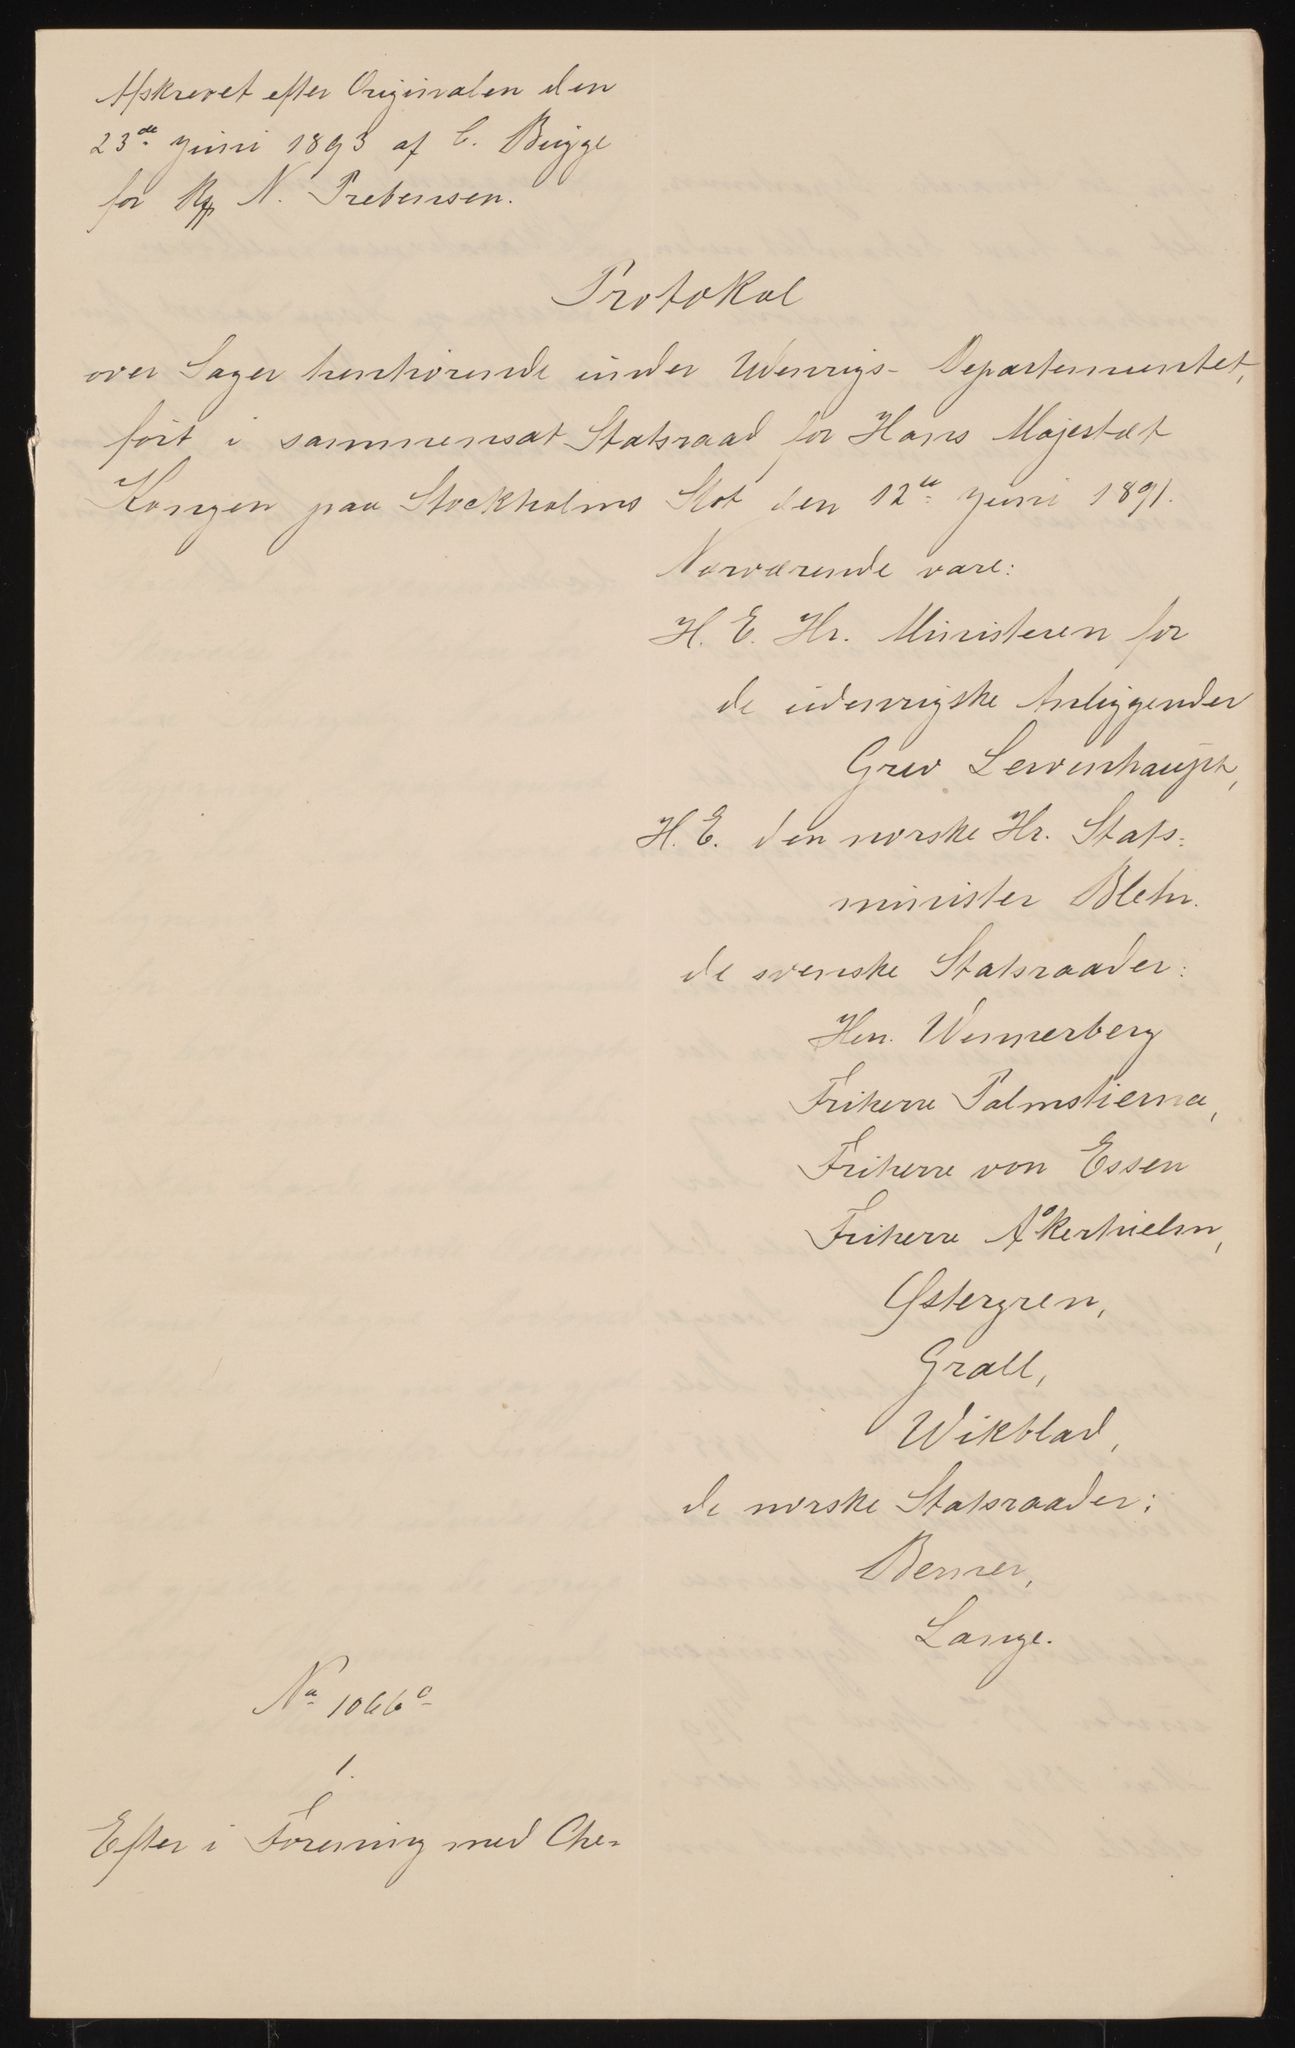 Afskrevet efter Originalen den
23de Juni 1893 af C. Bugge
for N. Prebensen.
Protokol
over Sager henhörende under Udenrigs-Departementet,
fört i sammensat Statsraad for Hans Majestæt
Kongen paa Stockholms Slot den 12te Juni 1891.
Nærværende vare:
H. E. Hr. Ministeren for
de udenrigske Anliggender
Grev Lewenhaupt,
H. E. den norske Hr. Stats-
minister Blehr.
de svenske Statsraader:
Hrr. Wennerberg
Friherre Palmstierna,
Friherre von Essen
Friherre Åkerhielm,
Østergren,
Groll,
Wikblad,
de norske Statsraader:
Berner,
Lange.
No 1066
1.
Efter i Forening med Che-